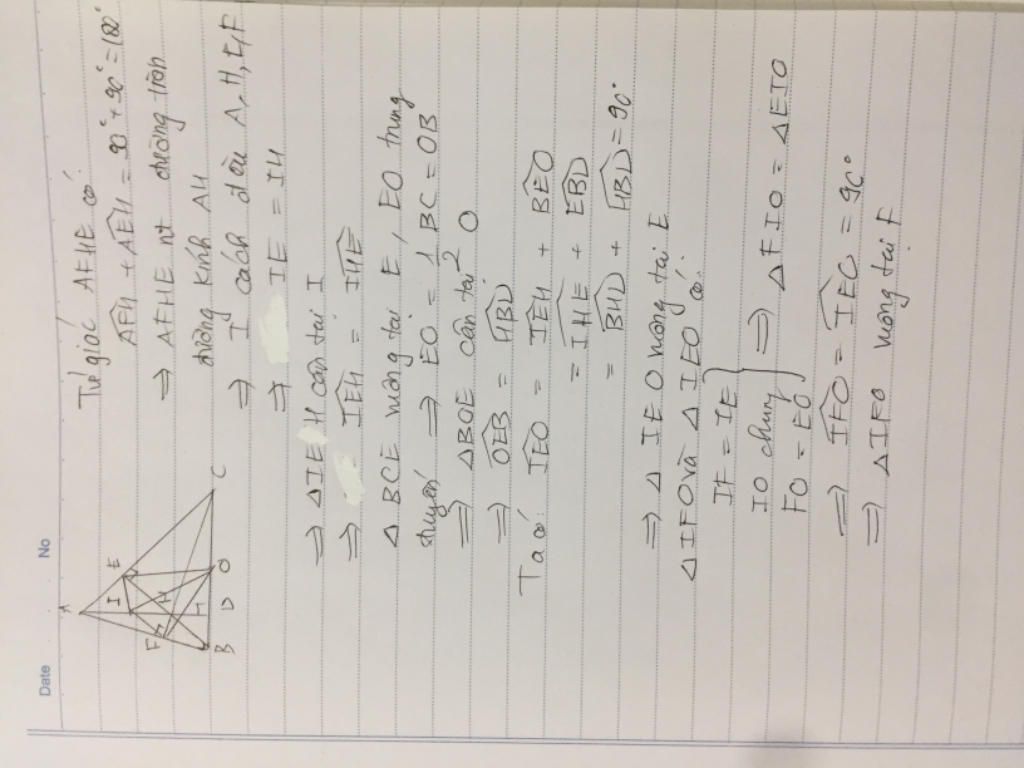 Date No
Tứ giác AFHE có:
AFH + AEH = 90° + 90° = 180°
⇒ AFHE nt đường tròn
đường kính AH
⇒ I cách đều A, H, E, F
⇒ IE = IH
⇒ △IEH cân tại I
⇒ IEH = IHE
△ BCE vuông tại E, EO trung
tuyến ⇒ EO = 1/2 BC = OB
⇒ △BOE cân tại O
⇒ OEB = HBD
Ta có: IEO = IEH + BEO
= IHE + EBD
= BHD + HBD = 90°
⇒ △ IEO vuông tại E
△IFO và △IEO có:
IF = IE
IO chung
FO = EO
⇒ △FIO = △EIO
⇒ IFO = IEC = 90°
⇒ △IFO vuông tại F
A
I E
F
H
B D O C